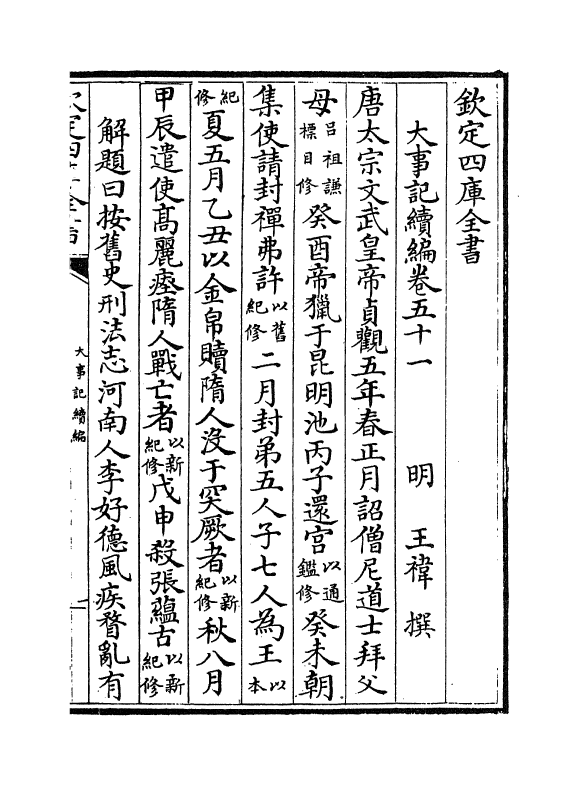 欽定四庫全書
大事記續編卷五十一　　明　王禕　撰
唐太宗文武皇帝貞觀五年春正月詔僧尼道士拜父
母呂祖謙標目修癸酉帝獵于昆明池丙子還宮以通鑑修癸未朝
集使請封禪弗許以舊紀修二月封弟五人子七人為王以本
紀修夏五月乙丑以金帛贖隋人没于突厥者以新紀修秋八月
甲辰遣使髙麗瘞隋人戰亡者以新紀修戊申殺張藴古以新紀修
解題曰按舊史刑法志河南人李好德風疾瞀亂有
欽定四庫全書
大事記續編
一